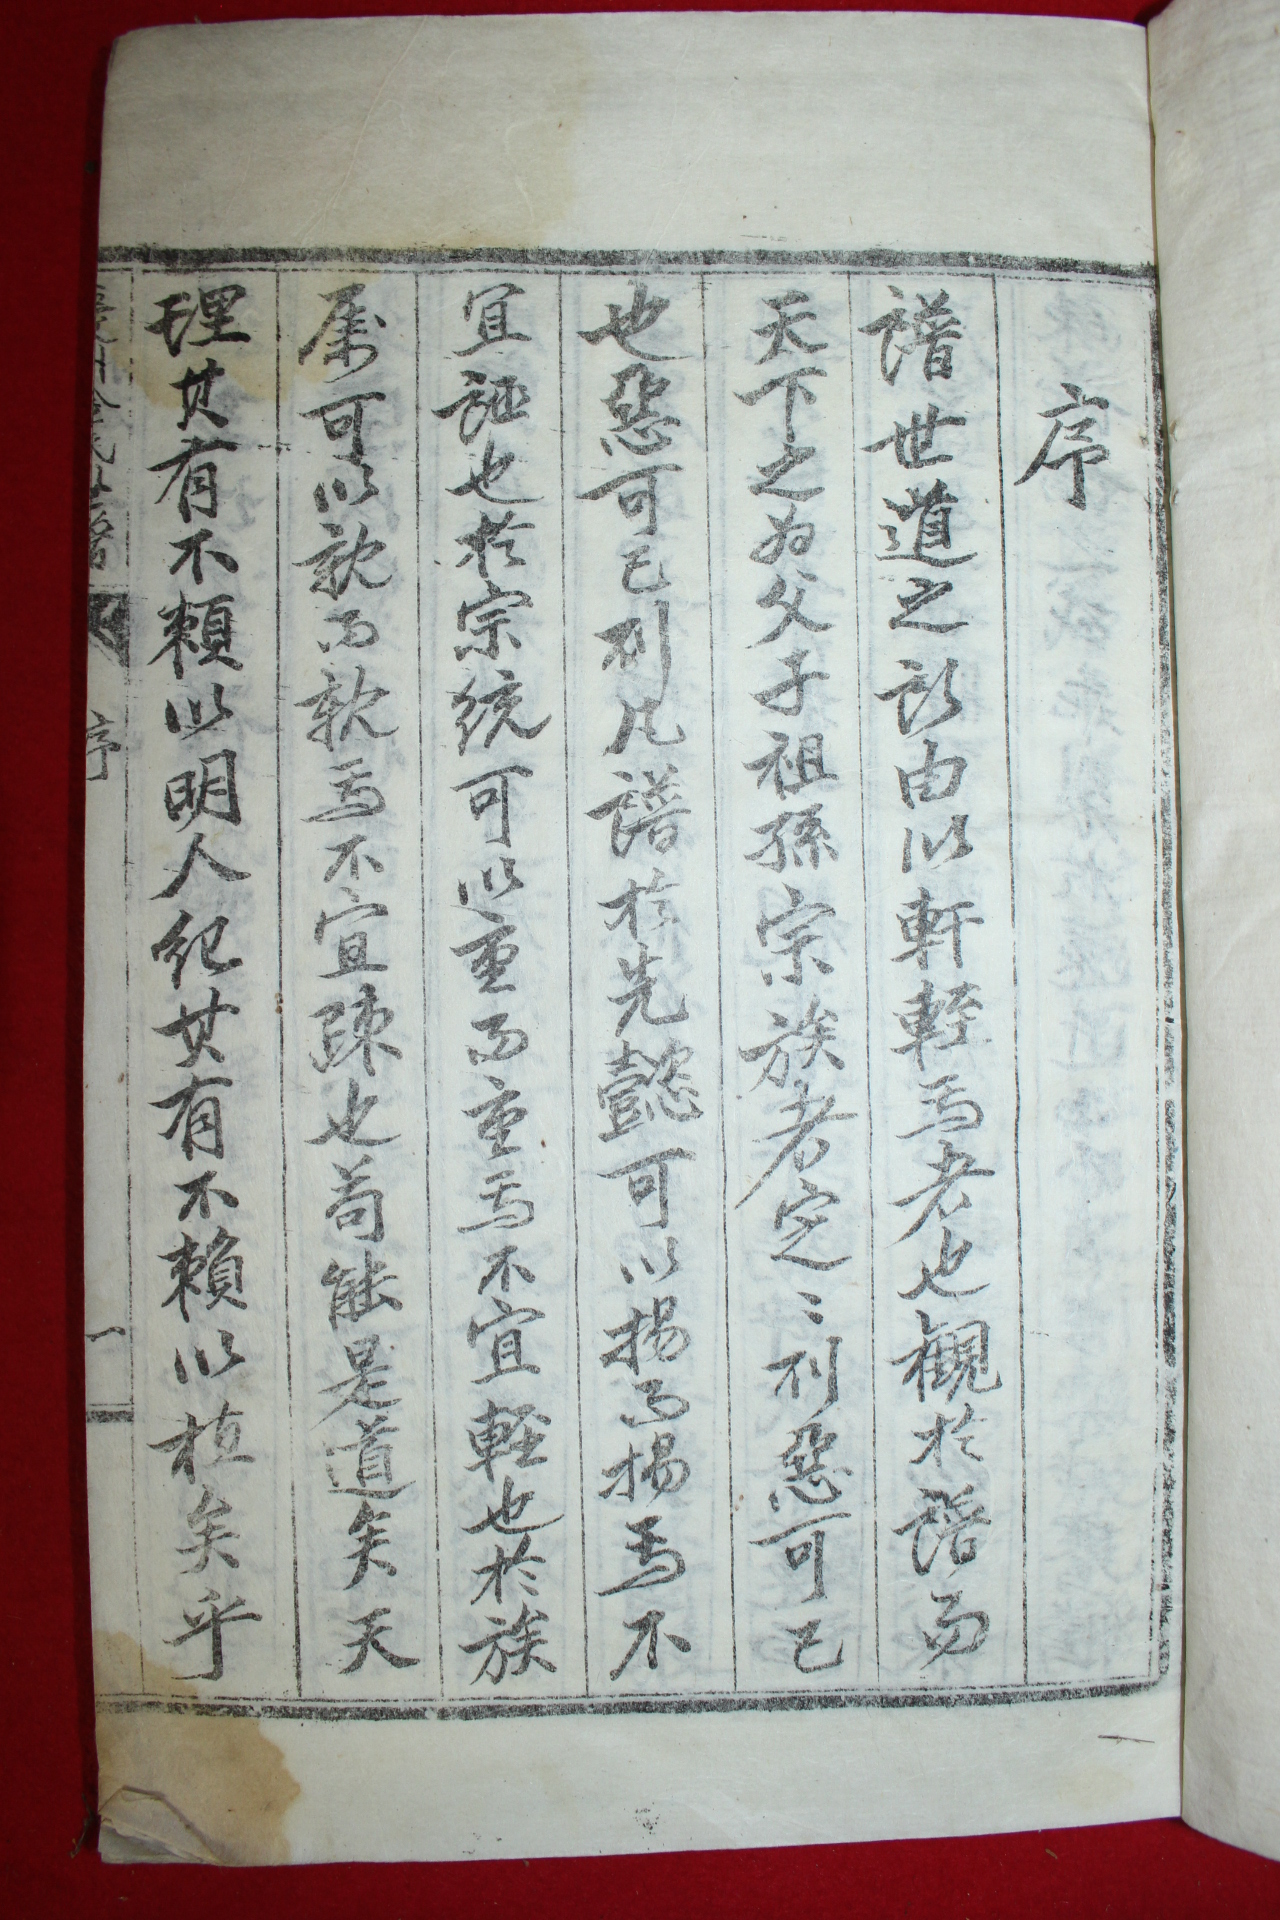 序
譜世道之所由以軒輊焉者也觀於譜而
天下之為父子祖孫宗族者定〻則惡可已
也惡可已則凡譜於先懿可以揚而揚焉不
宜誣也於宗統可以重而重焉不宜輕也於族
属可以親而親焉不宜踈也苟能是道矣天
理其有不賴以明人紀其有不賴以植矣乎
慶州金氏世譜
序
一